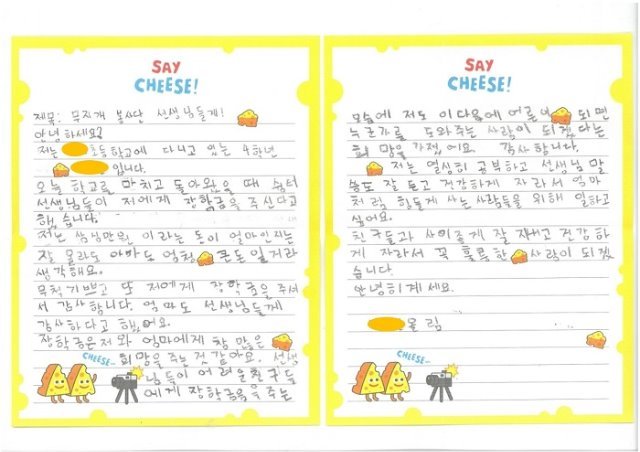 SAY
CHEESE!
제목: 무지개 봉사단 선생님들께!
안녕하세요?
저는 초등학교에 다니고 있는 4학년
입니다.
오늘 학교를 마치고 돌아왔을 때 쉼터
선생님들이 저에게 장학금을 주신다고
했습니다.
저는 삼십만원 이라는 돈이 얼마인지는
잘 몰라도 아마도 엄청 큰돈 일거라
생각해요.
무척 기쁘고 또 저에게 장학금을 주셔
서 감사합니다. 엄마도 선생님들께
감사하다고 했어요.
장학금은 저와 엄마에게 참 많은
희망을 주는것 같아요. 선생
님들이 어려운 친구들
에게 장학금을 주는
CHEESE~
SAY
CHEESE!
모습에 저도 이 다음에 어른이 되면
누군가를 도와주는 사람이 되겠다는
희망을 가졌어요. 감사합니다.
저는 열심히 공부하고 선생님 말
씀도 잘 듣고 건강하게 자라서 엄마
처럼 힘들게 사는 사람들을 위해 일하고
싶어요.
친구들과 사이좋게 잘 지내고 건강하
게 자라서 꼭 훌륭한 사람이 되겠
습니다.
안녕히 계세요.
올림
CHEESE~